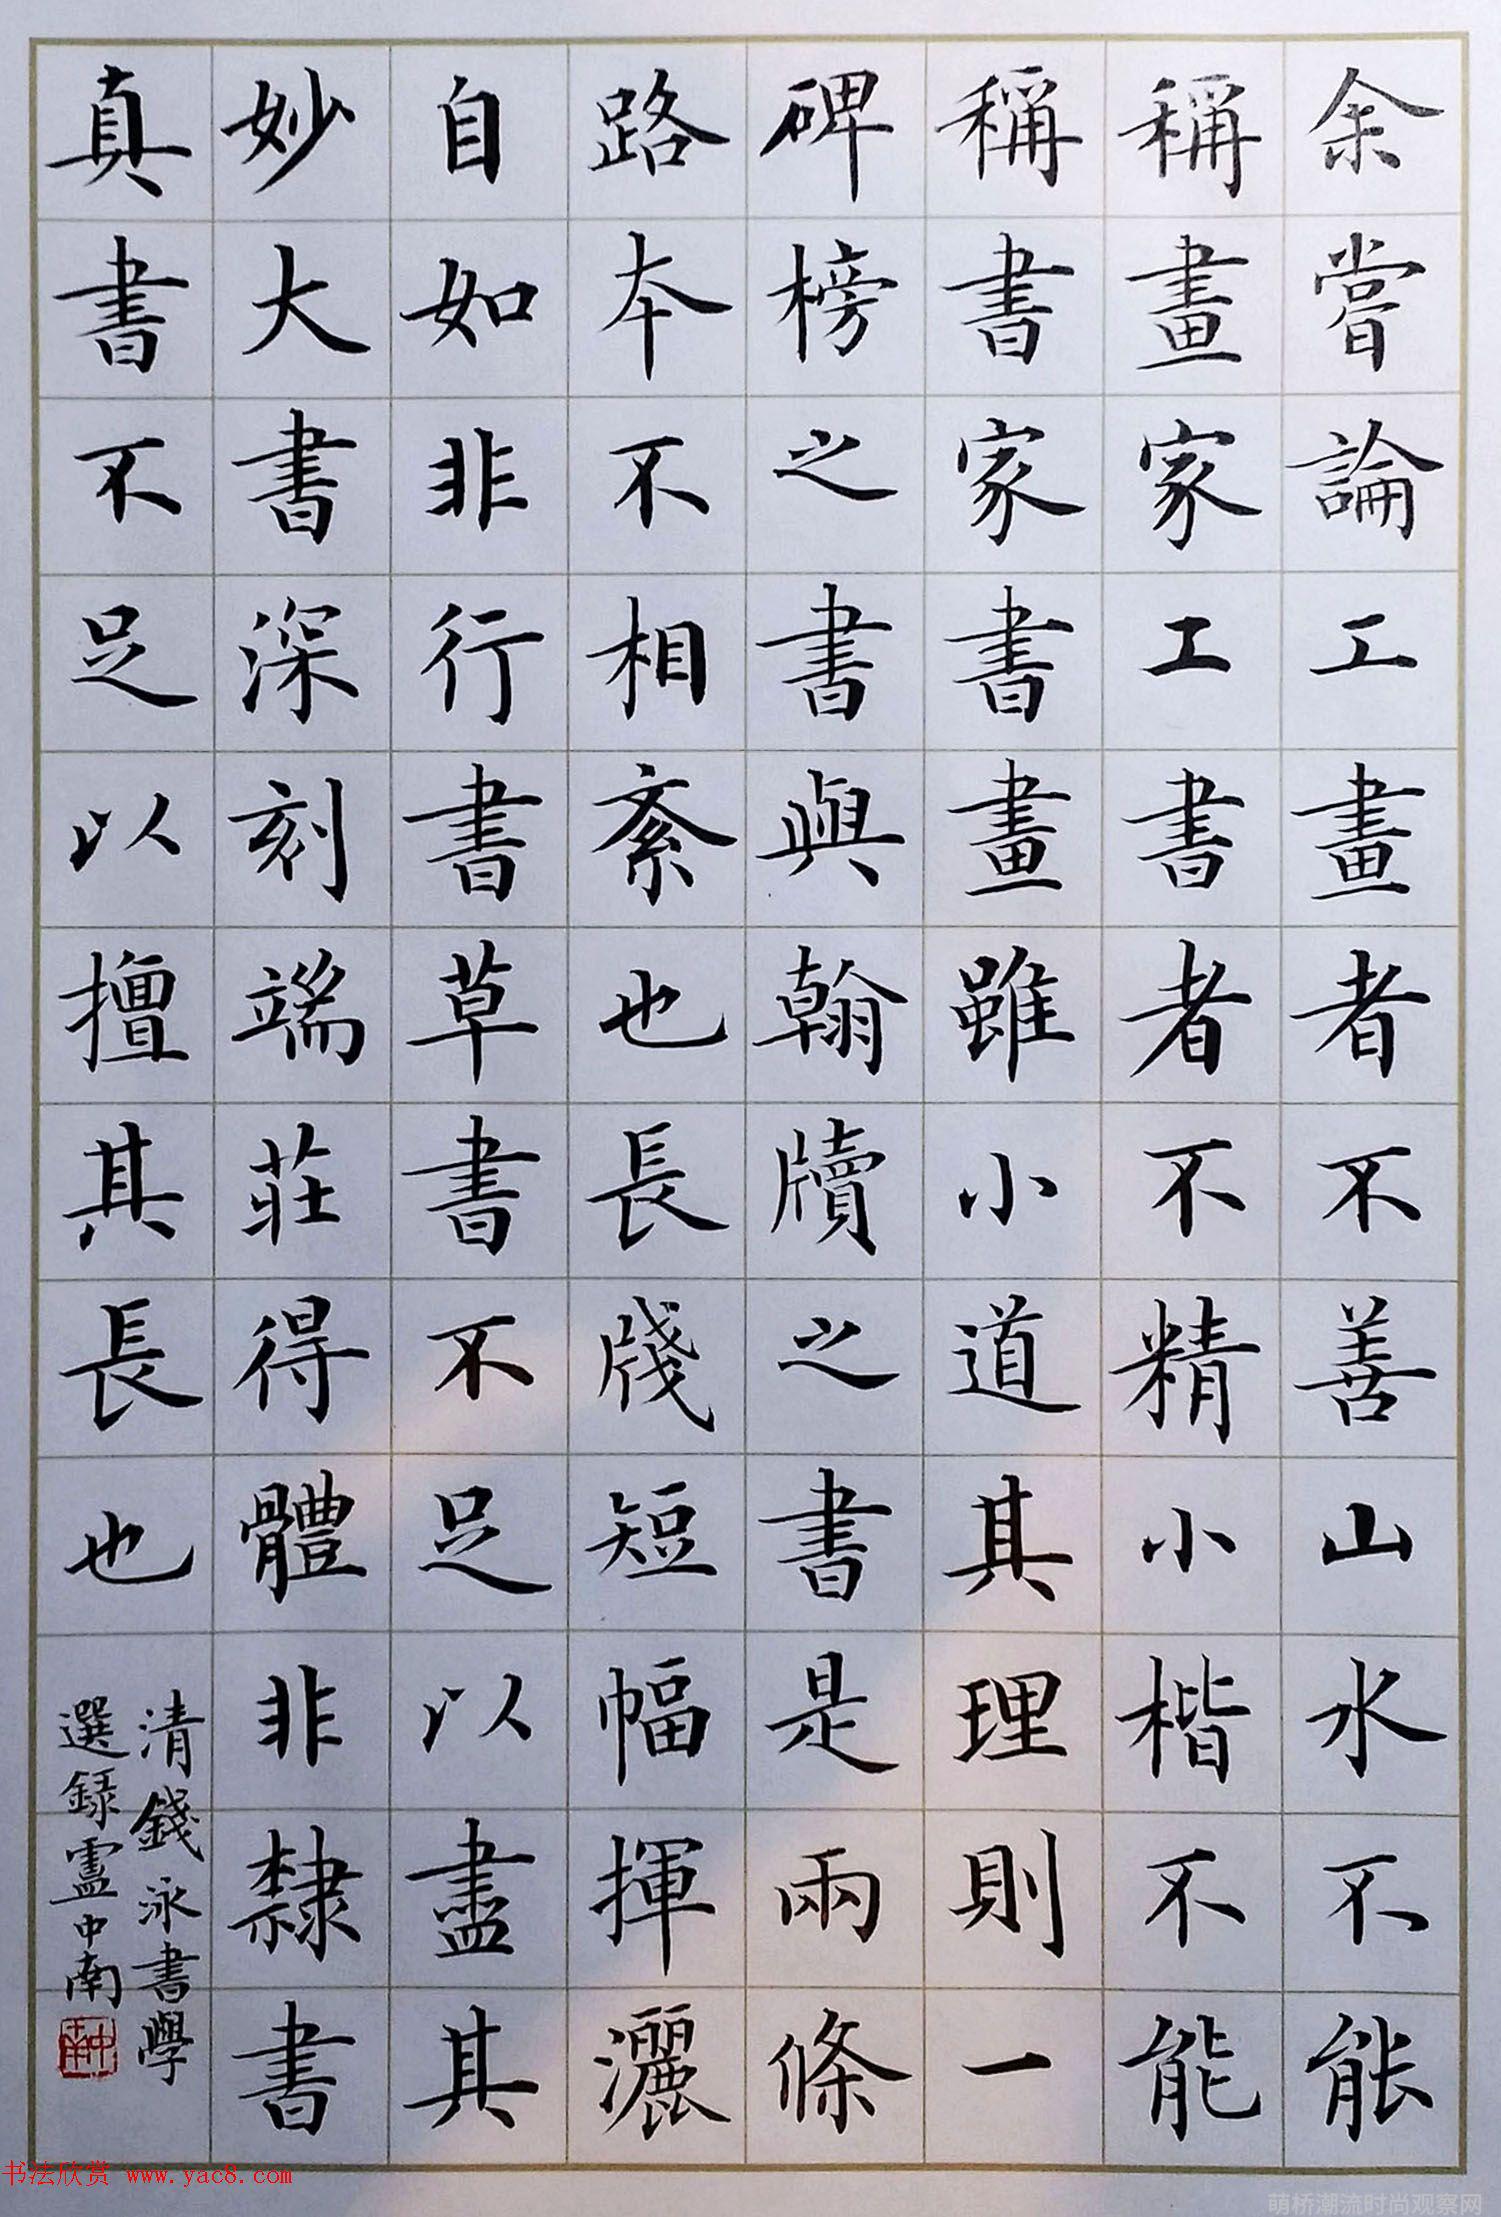 余嘗論工畫者不善山水不能
稱畫家工書者不精小楷不能
稱書家書畫雖小道其理則一
碑榜之書與翰牘之書是兩條
路本不相紊也長牋短幅揮灑
自如非行書草書不足以盡其
妙大書深刻端莊得體非隸書
真書不足以擅其長也
清錢泳書學
選録盧中南
中南
书法欣赏 www.yac8.com
萌桥潮流时尚观察网